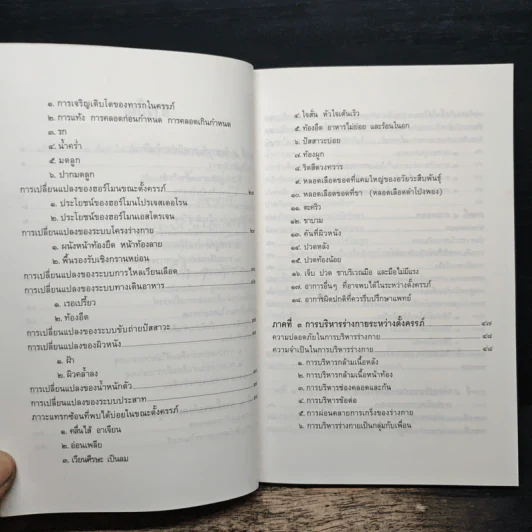 ๑. การเจริญเติบโตของทารกในครรภ์
๒. การแท้ง การคลอดก่อนกำหนด การคลอดเกินกำหนด
๓. รก
๔. น้ำคร่ำ
๕. มดลูก
๖. ปากมดลูก
การเปลี่ยนแปลงของฮอร์โมนขณะตั้งครรภ์
๑. ประโยชน์ของฮอร์โมนโปรเจสเตอโรน
๒. ประโยชน์ของฮอร์โมนเอสโตรเจน
การเปลี่ยนแปลงของระบบโครงร่างกาย
๑. ผนังหน้าท้องยืด หน้าท้องลาย
๒. พื้นรองรับเชิงกรานหย่อน
การเปลี่ยนแปลงของระบบการไหลเวียนเลือด
การเปลี่ยนแปลงของระบบทางเดินอาหาร
๑. เรอเปรี้ยว
๒. ท้องอืด
การเปลี่ยนแปลงของระบบขับถ่ายปัสสาวะ
การเปลี่ยนแปลงของผิวหนัง
๑. ฝ้า
๒. ผิวคล้ำลง
การเปลี่ยนแปลงของน้ำหนักตัว
การเปลี่ยนแปลงของระบบประสาท
ภาวะแทรกซ้อนที่พบได้บ่อยในขณะตั้งครรภ์
๑. คลื่นไส้ อาเจียน
๒. อ่อนเพลีย
๓. เวียนศีรษะ เป็นลม
๔. ใจสั่น หัวใจเต้นเร็ว
๕. ท้องอืด อาหารไม่ย่อย และร้อนในอก
๖. ปัสสาวะบ่อย
๗. ท้องผูก
๘. ริดสีดวงทวาร
๙. หลอดเลือดขอดที่แคมใหญ่ของอวัยวะสืบพันธุ์
๑๐. หลอดเลือดขอดที่ขา (หลอดเลือดดำโป่งพอง)
๑๑. ตะคริว
๑๒. ขาบวม
๑๓. คันที่ผิวหนัง
๑๔. ปวดหลัง
๑๕. ปวดท้องน้อย
๑๖. เจ็บ ปวด ชาบริเวณมือ และมือไม่มีแรง
๑๗. อาการอื่นๆ ที่อาจพบได้ในระหว่างตั้งครรภ์
๑๘. อาการผิดปกติที่ควรรีบปรึกษาแพทย์
ภาคที่ ๓ การบริหารร่างกายระหว่างตั้งครรภ์ ๔๗
ความปลอดภัยในการบริหารร่างกาย ๔๘
ความจำเป็นในการบริหารร่างกาย ๔๘
๑. การบริหารกล้ามเนื้อหลัง
๒. การบริหารกล้ามเนื้อหน้าท้อง
๓. การบริหารช่องคลอดและก้น
๔. การบริหารข้อต่อ
๕. การผ่อนคลายการเกร็งของร่างกาย
๖. การบริหารร่างกายเป็นกลุ่มกับเพื่อน